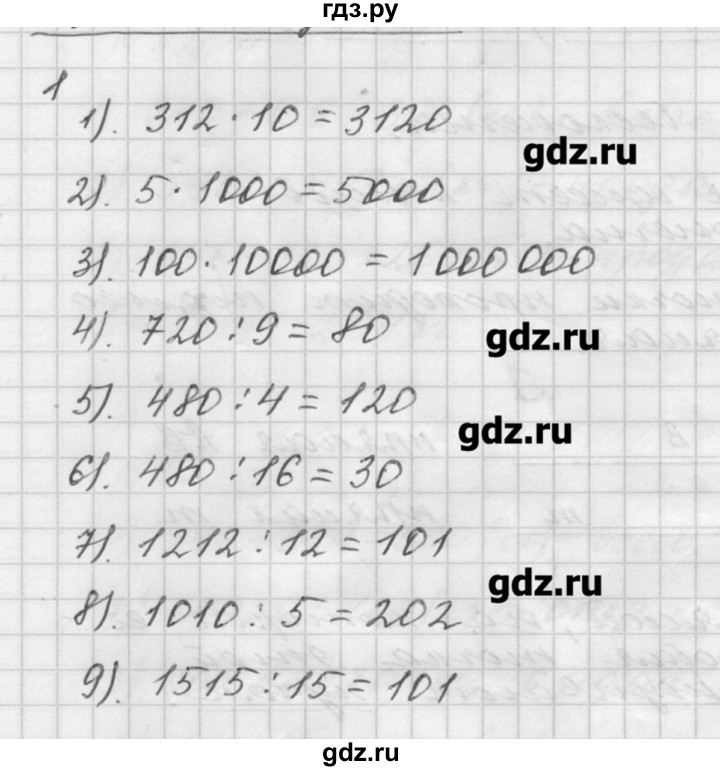 гдз.ру
1
1). 312 · 10 = 3120
gdz.ru
2). 5 · 1000 = 5000
3). 100 · 10000 = 1000 000
4). 720 : 9 = 80
gdz.ru
5). 480 : 4 = 120
gdz.ru
6). 480 : 16 = 30
7). 1212 : 12 = 101
gdz.ru
8). 1010 : 5 = 202
9). 1515 : 15 = 101
gdz.ru